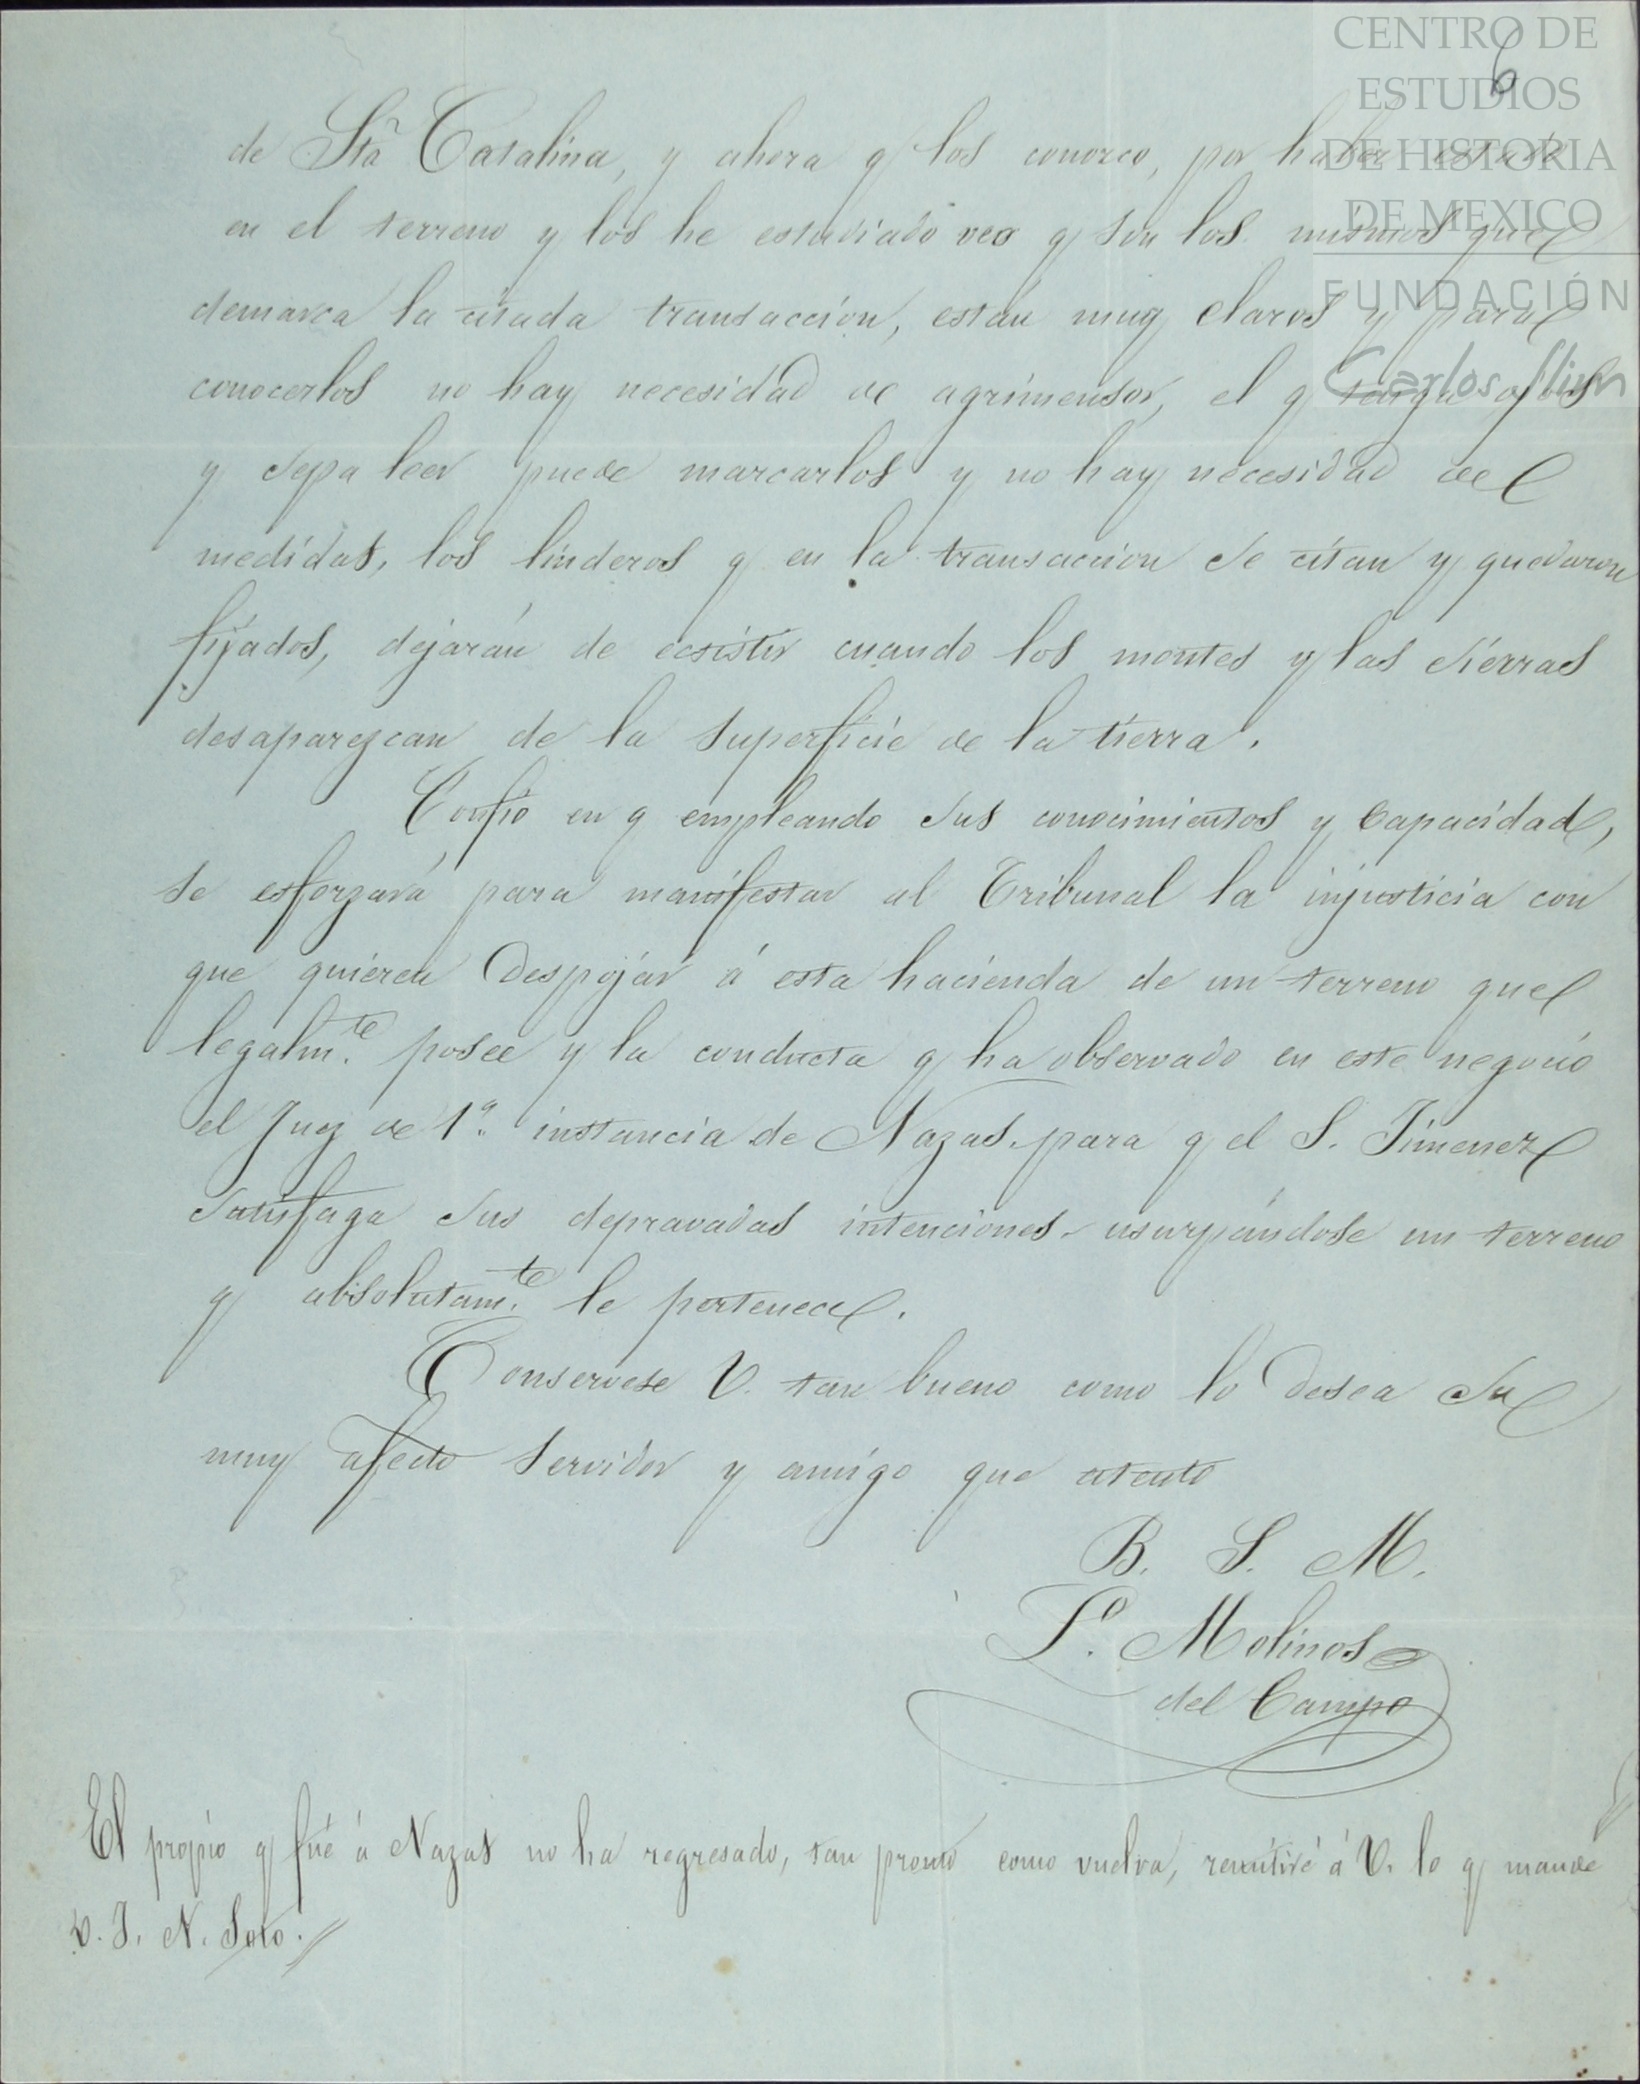 CENTRO DE
ESTUDIOS
DE HISTORIA
DE MEXICO
FUNDACIÓN
Carlos Slim
6
de Sta Catalina, y ahora q los conozco, por haber estado
en el terreno y los he estudiado veo q son los mismos que
demarca la citada transacción, están muy claros y para
conocerlos no hay necesidad de agrimensor, el q tenga ojos
y sepa leer puede marcarlos y no hay necesidad de
medidas, los linderos q en la transaccion se citan y quedaron
fijados, dejarán de ecsistir cuando los montes y las sierras
desaparezcan de la superficie de la tierra.
Confio en q empleando sus conocimientos y capacidad,
se esforzará para manifestar al Tribunal la injusticia con
que quieren despojar á esta hacienda de un terreno que
legalm.te posee y la conducta q ha observado en este negocio
el Juez de 1a. instancia de Nazas para q el S. Jimenez
satisfaga sus depravadas intenciones usurpándose un terreno
q absolutam.te le pertenece.
Conservese V. tan bueno como lo desea su
muy afecto servidor y amigo que atento
B. S. M.
P.o Molinos
del Campo
El propio q fué á Nazas no ha regresado, tan pronto como vuelva, remitiré á V. lo q mande
D. J. N. Soto.